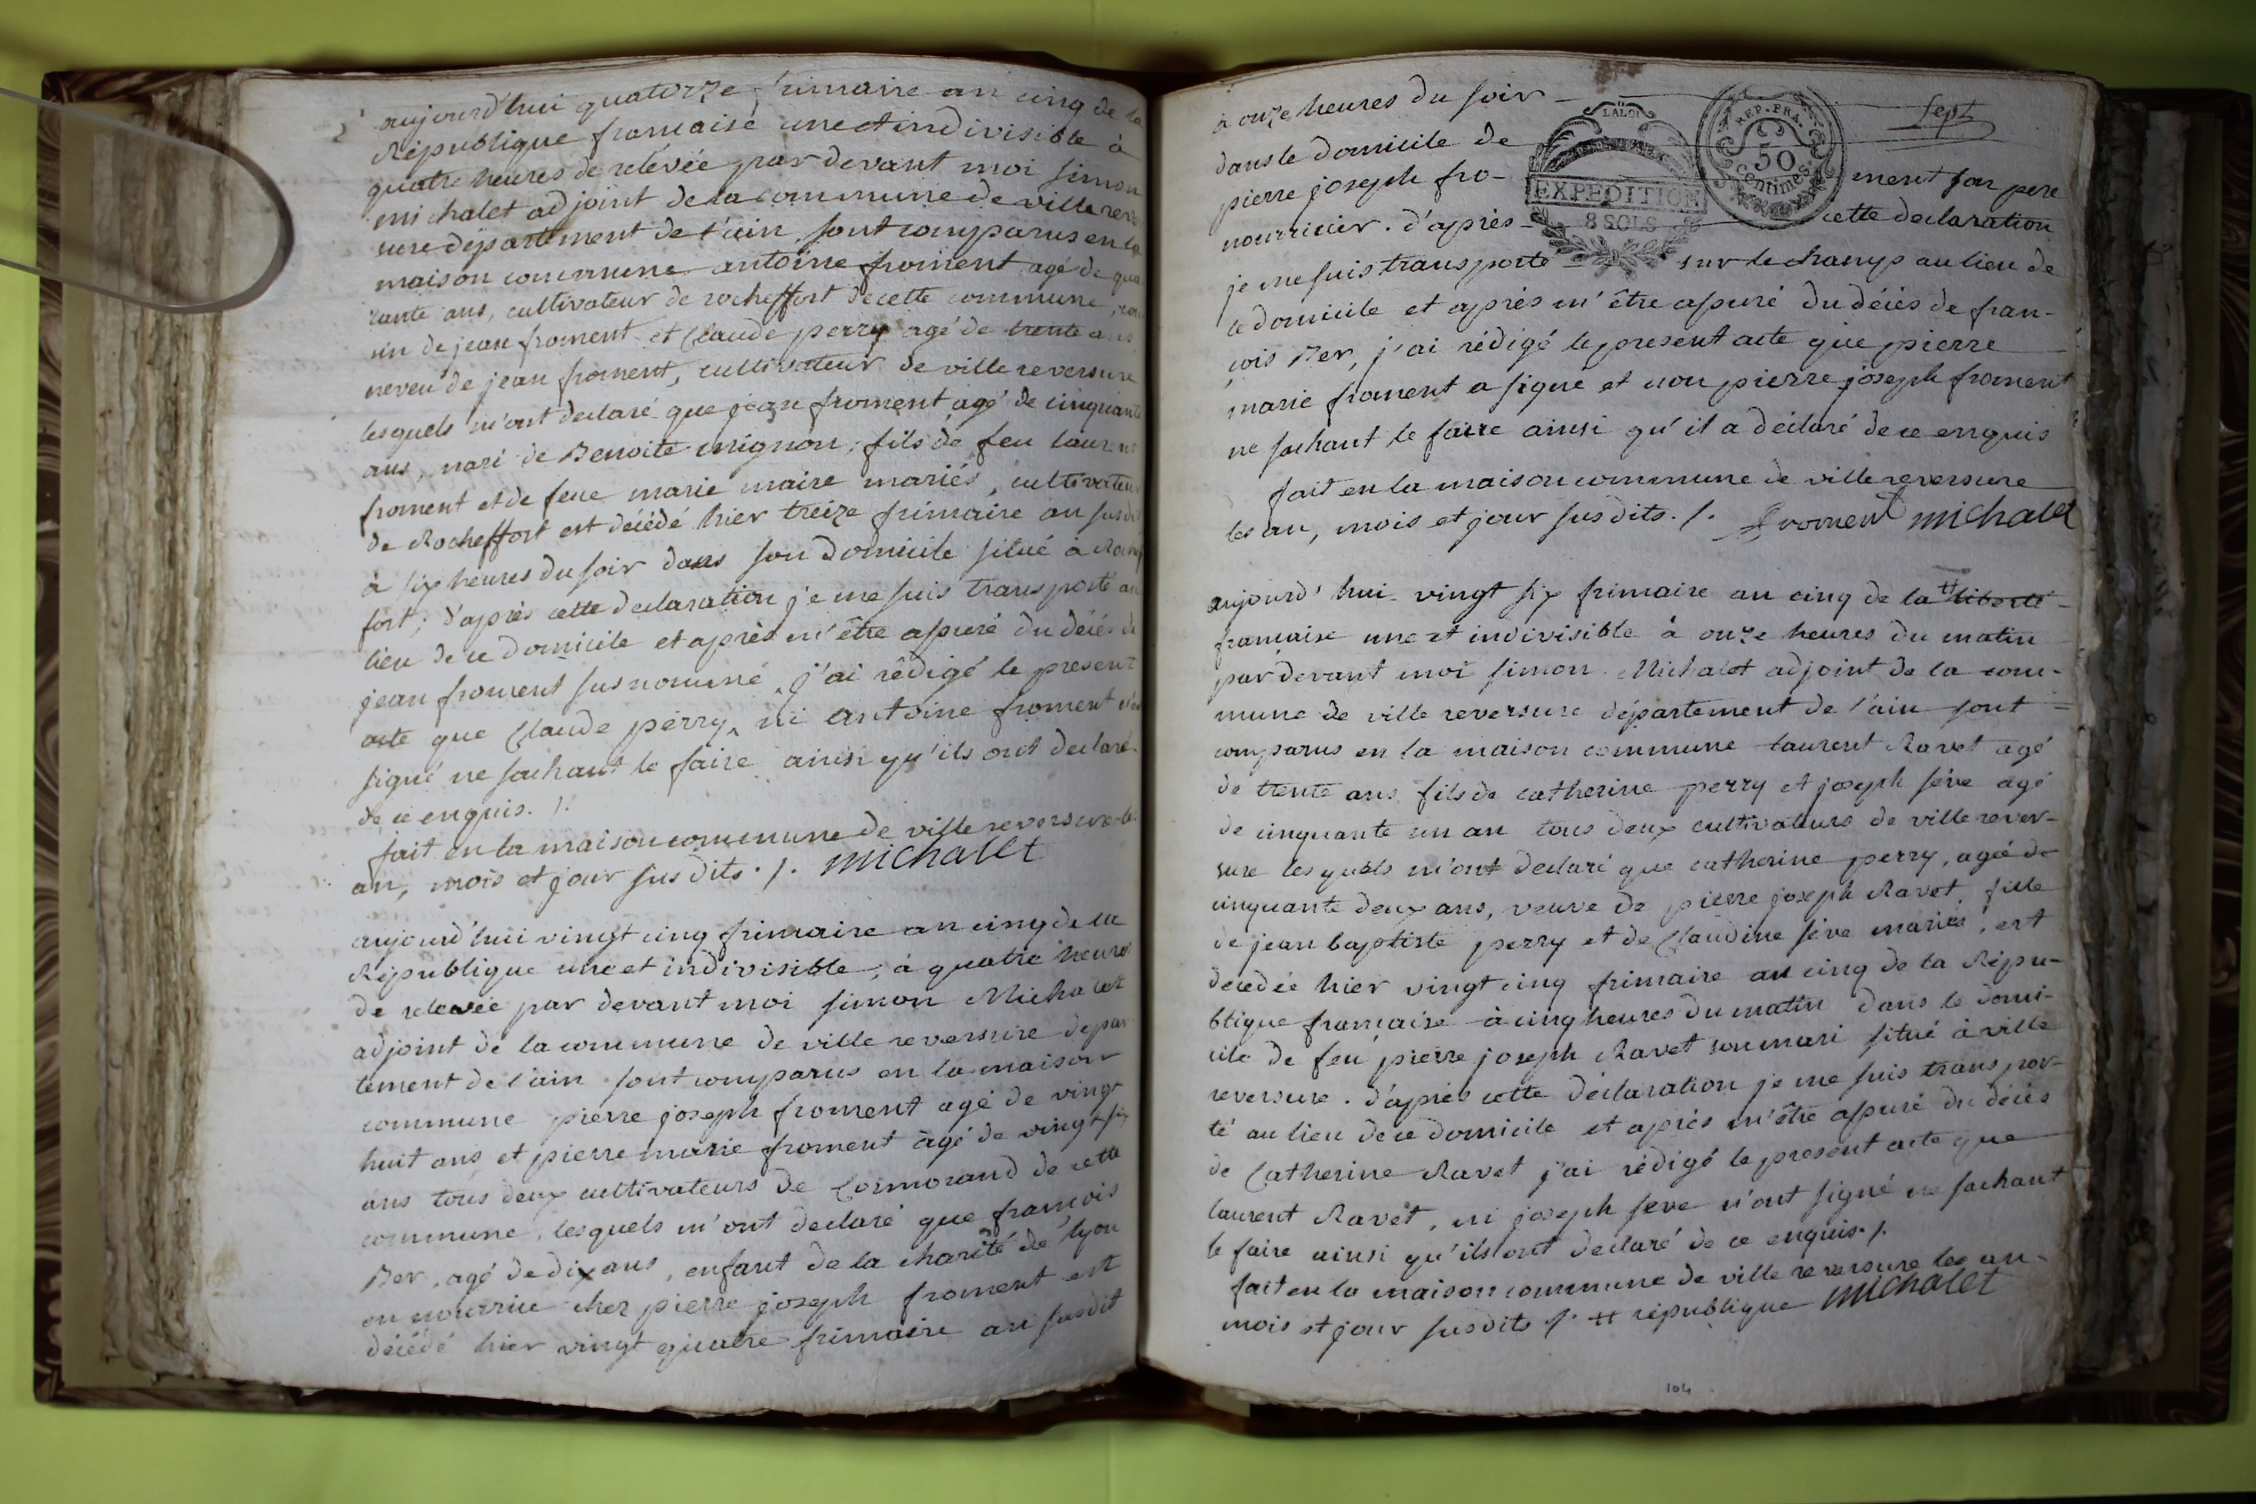 aujourd'hui quatorze frimaire an cinq de la
République francaise une et indivisible à
quatre heures de relévée par devant moi simon
michalet adjoint de la commune de ville rever
sure département de l'ain, sont comparus en la
maison commune antoine froment agé de qua
rante ans, cultivateur de rocheffort de cette commune,
de jean froment et Claude perry agé de trente ans
neveu de jean froment, cultivateur de ville reversure
lesquels m'ont declaré que jean froment agé de cinquante
ans, mari de Benoite mignon, fils de feu laurent
froment et de feue marie maire mariés, cultivateur
de Rocheffort est décédé hier treize frimaire an susdit
à six heures du soir dans son domicile situé à Rochef
fort; d'après cette declaration je me suis transporté au
lieu de ce domicile et après m'être assuré du décés de
jean froment susnommé, j'ai rédigé le present
acte que Claude perry, ni antoine froment n'ont
signé ne sachant le faire ainsi qu'ils ont declaré
de ce enquis. /.
fait en la maison commune de ville reversure les
an, mois et jour susdits. /. michalet
aujourd'hui vingt cinq frimaire an cinq de la
République une et indivisible, à quatre heures
de relevée par devant moi simon Michalet
adjoint de la commune de ville reversure depar
tement de l'ain sont comparus en la maison
commune pierre joseph froment agé de vingt
huit ans et pierre marie froment agé de vingt six
ans tous deux cultivateurs de Cormorand de cette
commune, lesquels m'ont declaré que francois
Ber, agé de dix ans, enfant de la charité de lyon
en nourrice chez pierre joseph froment est
décédé hier vingt quatre frimaire an susdit
sept
à onze heures du soir
dans le domicile de
pierre joseph fro- ment son pere
nourricier. d'après cette declaration
je me suis transporté sur le champ au lieu de
ce domicile et après m'être assuré du décés de fran-
cois Ber, j'ai rédigé le present acte que pierre
marie froment a signé et non pierre joseph froment
ne sachant le faire ainsi qu'il a déclaré de ce enquis
fait en la maison commune de ville reversure
les an, mois et jour susdits. /. froment michalet
LA LOI
EXPEDITION
8 SOLS
REP. FRA.
50
centimes
aujourd'hui vingt six frimaire an cinq de la # liberté
francaise une et indivisible à onze heures du matin
par devant moi simon Michalet adjoint de la com-
mune de ville reversure département de l'ain sont
comparus en la maison commune laurent Ravet agé
de trente ans fils de catherine perry et joseph séve agé
de cinquante un an tous deux cultivateurs de ville rever-
sure lesquels m'ont declaré que catherine perry, agée de
cinquante deux ans, veuve de pierre joseph Ravet, fille
de jean baptiste perry et de Claudine séve mariés, est
décédée hier vingt cinq frimaire an cinq de la Répu-
blique francaise à cinq heures du matin dans le domi-
cile de feu pierre joseph Ravet son mari situé à ville
reversure. d'après cette déclaration je me suis transpor-
té au lieu de ce domicile et après m'être assuré du décés
de Catherine Ravet j'ai rédigé le present acte que
laurent Ravet, ni joseph seve n'ont signé ne sachant
le faire ainsi qu'ils ont declaré de ce enquis. /.
fait en la maison commune de ville reversure les an-
mois et jour susdits /. # république michalet
104